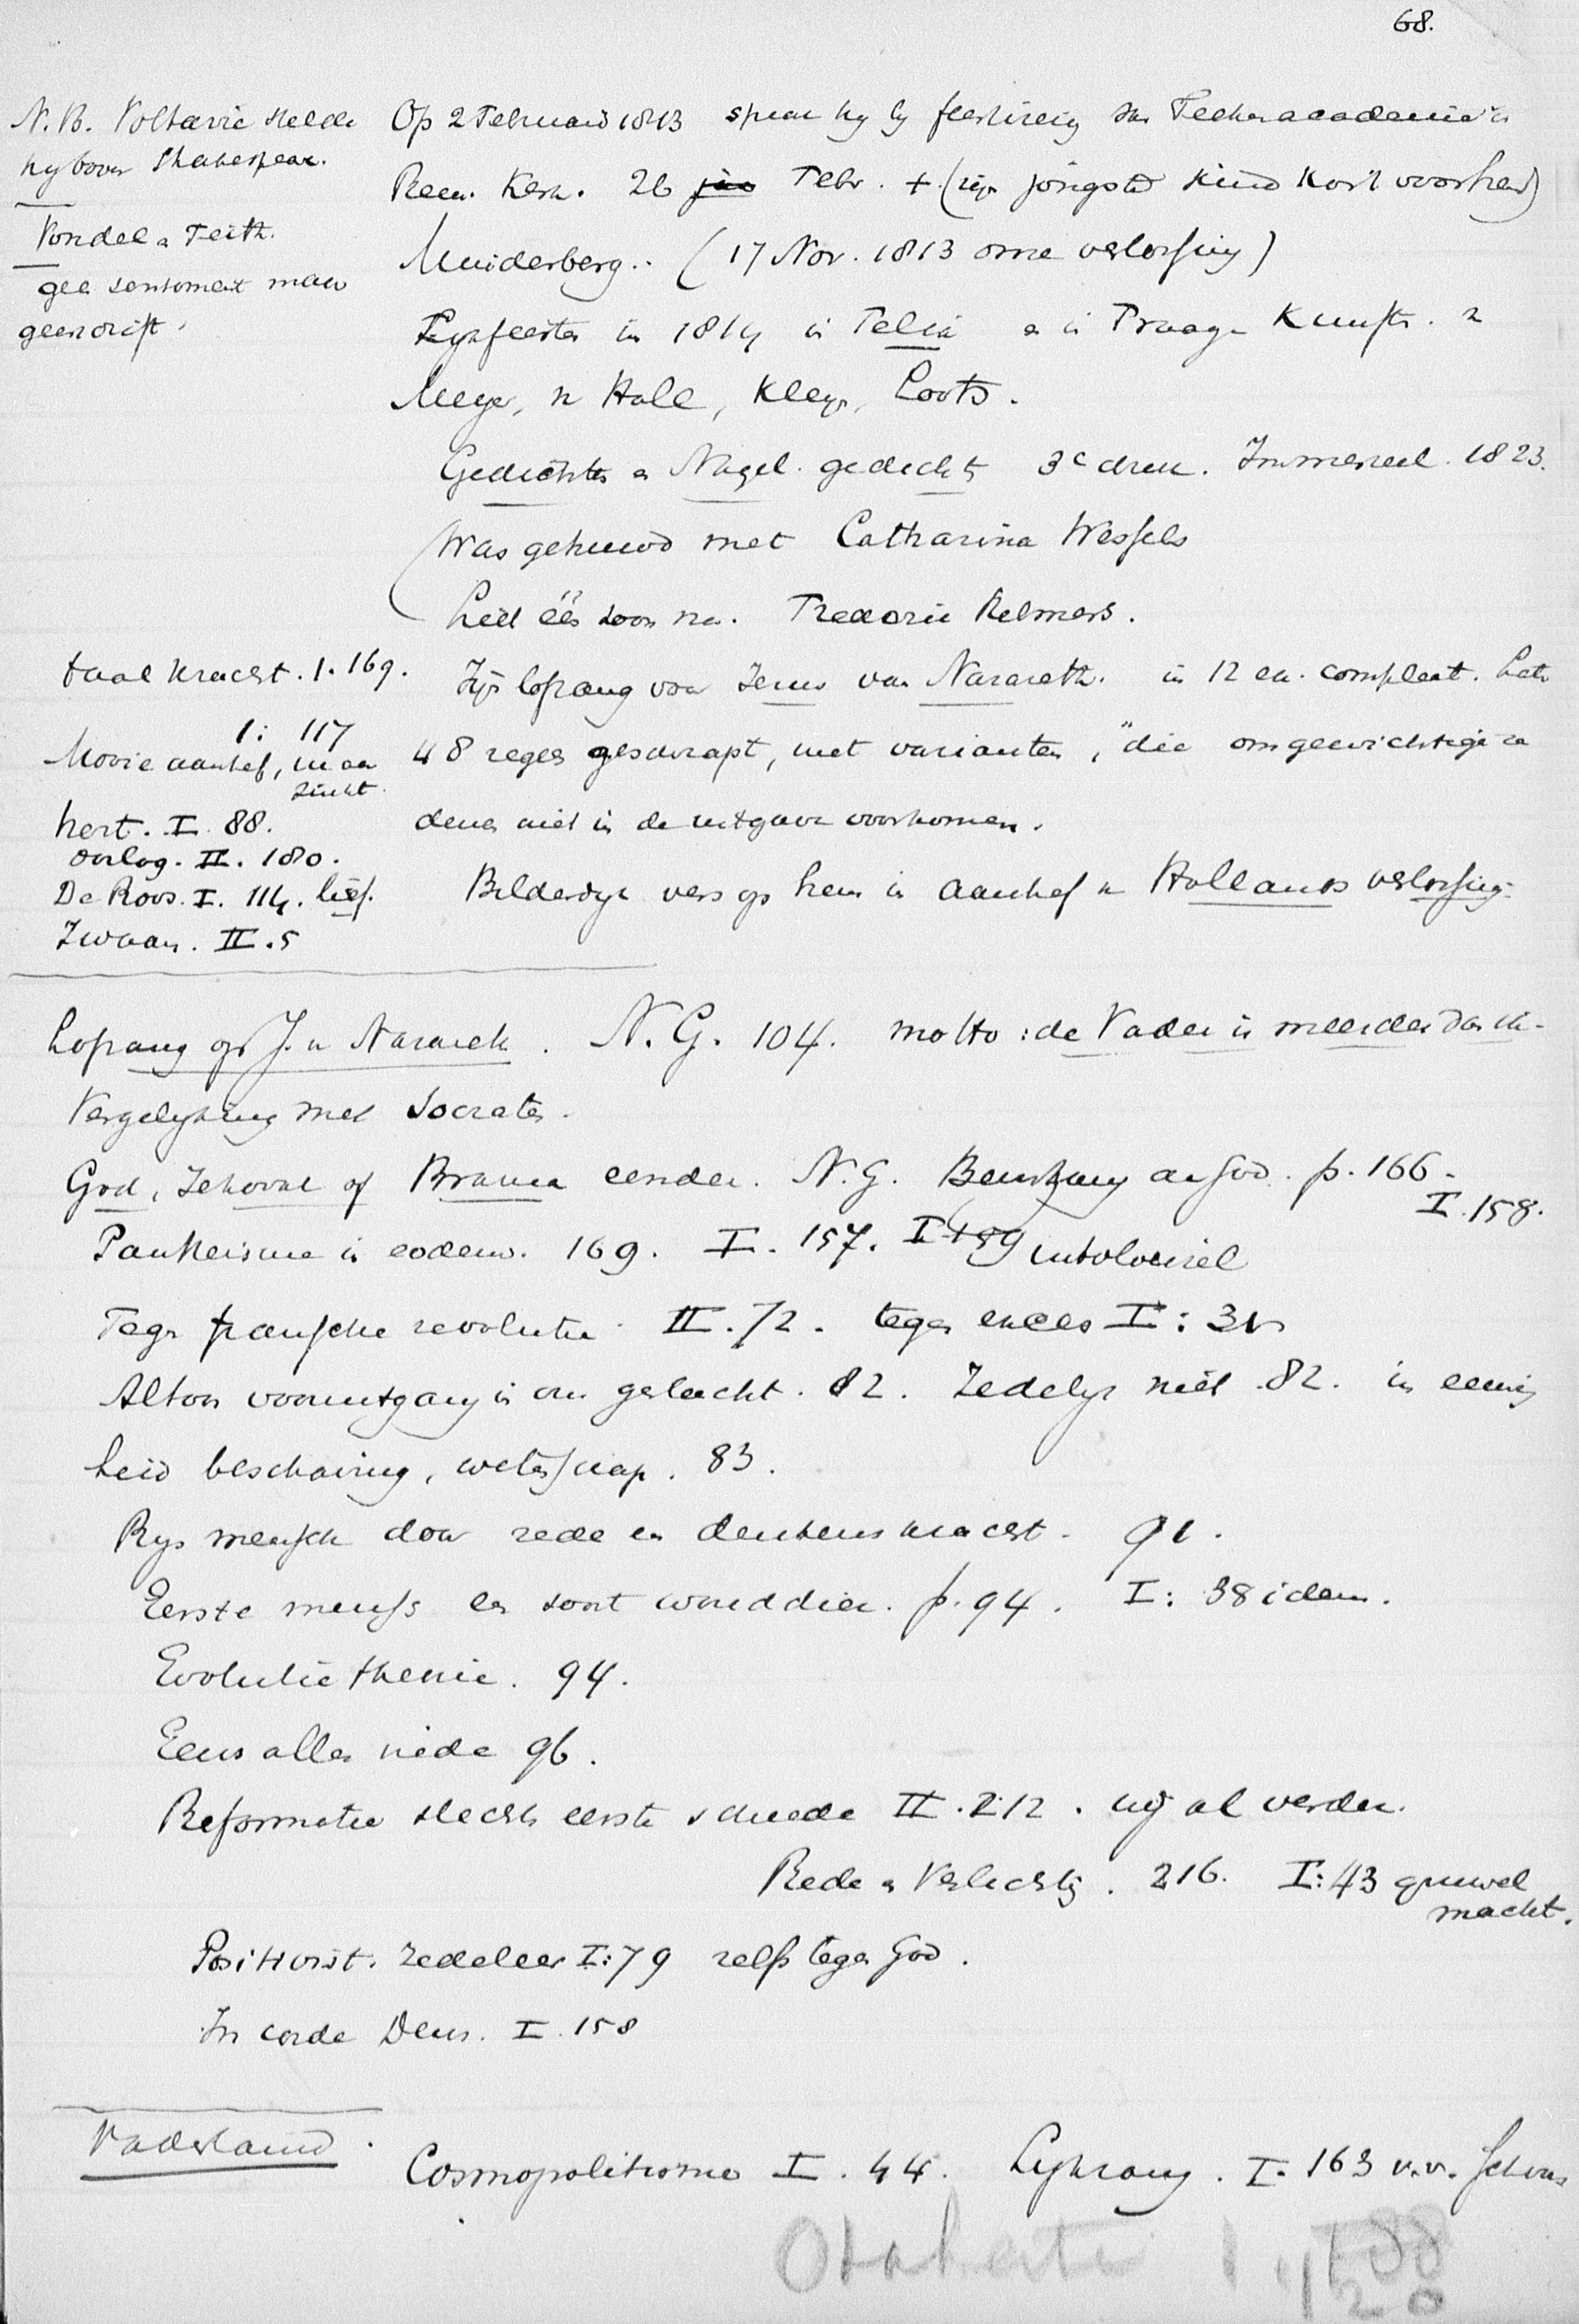 68.
N.B. Voltaire stelde
hy boven Shakespear.
Vondel a Feith.
geen sentiment maar
geen drift.
Op 2 Februari 1813 sprak hy by feestviering van Tekenacademie in
Rem. Kerk. 26 Febr. + (zijn jongste kind kort voorheen)
Muiderberg.. (17 Nov. 1813 onze verlossing)
Lykfeesten in 1814 in Felix a in Kunst. v
Meyer, v Hall, Kleyn, Loots.
Gedichten a Nagel. gedichten 3e druk. Immerzeel. 1823.
Was gehuwd met Catharina Wessels
Liet één zoon na. Frederic Helmers.
taal kracht. 1. 169.
1: 117
Mooie aanhef, maan
zucht
hert. I. 88.
oorlog. II. 180.
De Roos. I. 114. lief.
Zwaan. II. 5
Zijn lofzang voor Jezus van Nazareth. in 12 ex. compleet. Later
48 regels geschrapt, met varianten, "die om gewichtige re
denen niet in de uitgave voorkomen.
Bilderdyk vers op hem in aanhef v Hollands verlossing.
Lofzang op J. v Nazareth. N.G. 104. motto: de Vader is meerder dan ik.
Vergelyking met Socrates.
God, Jehova of Brama eender. N.G. aan God. p. 166.
I. 158.
Pantheisme in eodem. 169. I. 157. I 159
Tegen fransche revolutie. II. 72. tegen exces I: 31
Altoos vooruitgang in ons geslacht. 82. Zedelyk niet. 82. in eenig
heid beschaving, wetenschap. 83.
Rys mensch door rede en denkens kracht. 91.
Eerste mensch een soort wouddier. p. 94. I: 38 idem.
Evolutie theorie. 94.
Eens alles vrede 96.
Reformatie slechts eerste schrede II. 212. wij al verder.
Rede a Verlichting. 216. I: 43 gruwel
macht.
Positivist. zedeleer I: 79 zelfs tegen God.
In corde Deus. I. 158
Vaderland.
Cosmopolitisme I. 44. Lykzang. I. 163 v.v. Schons
Otaheite